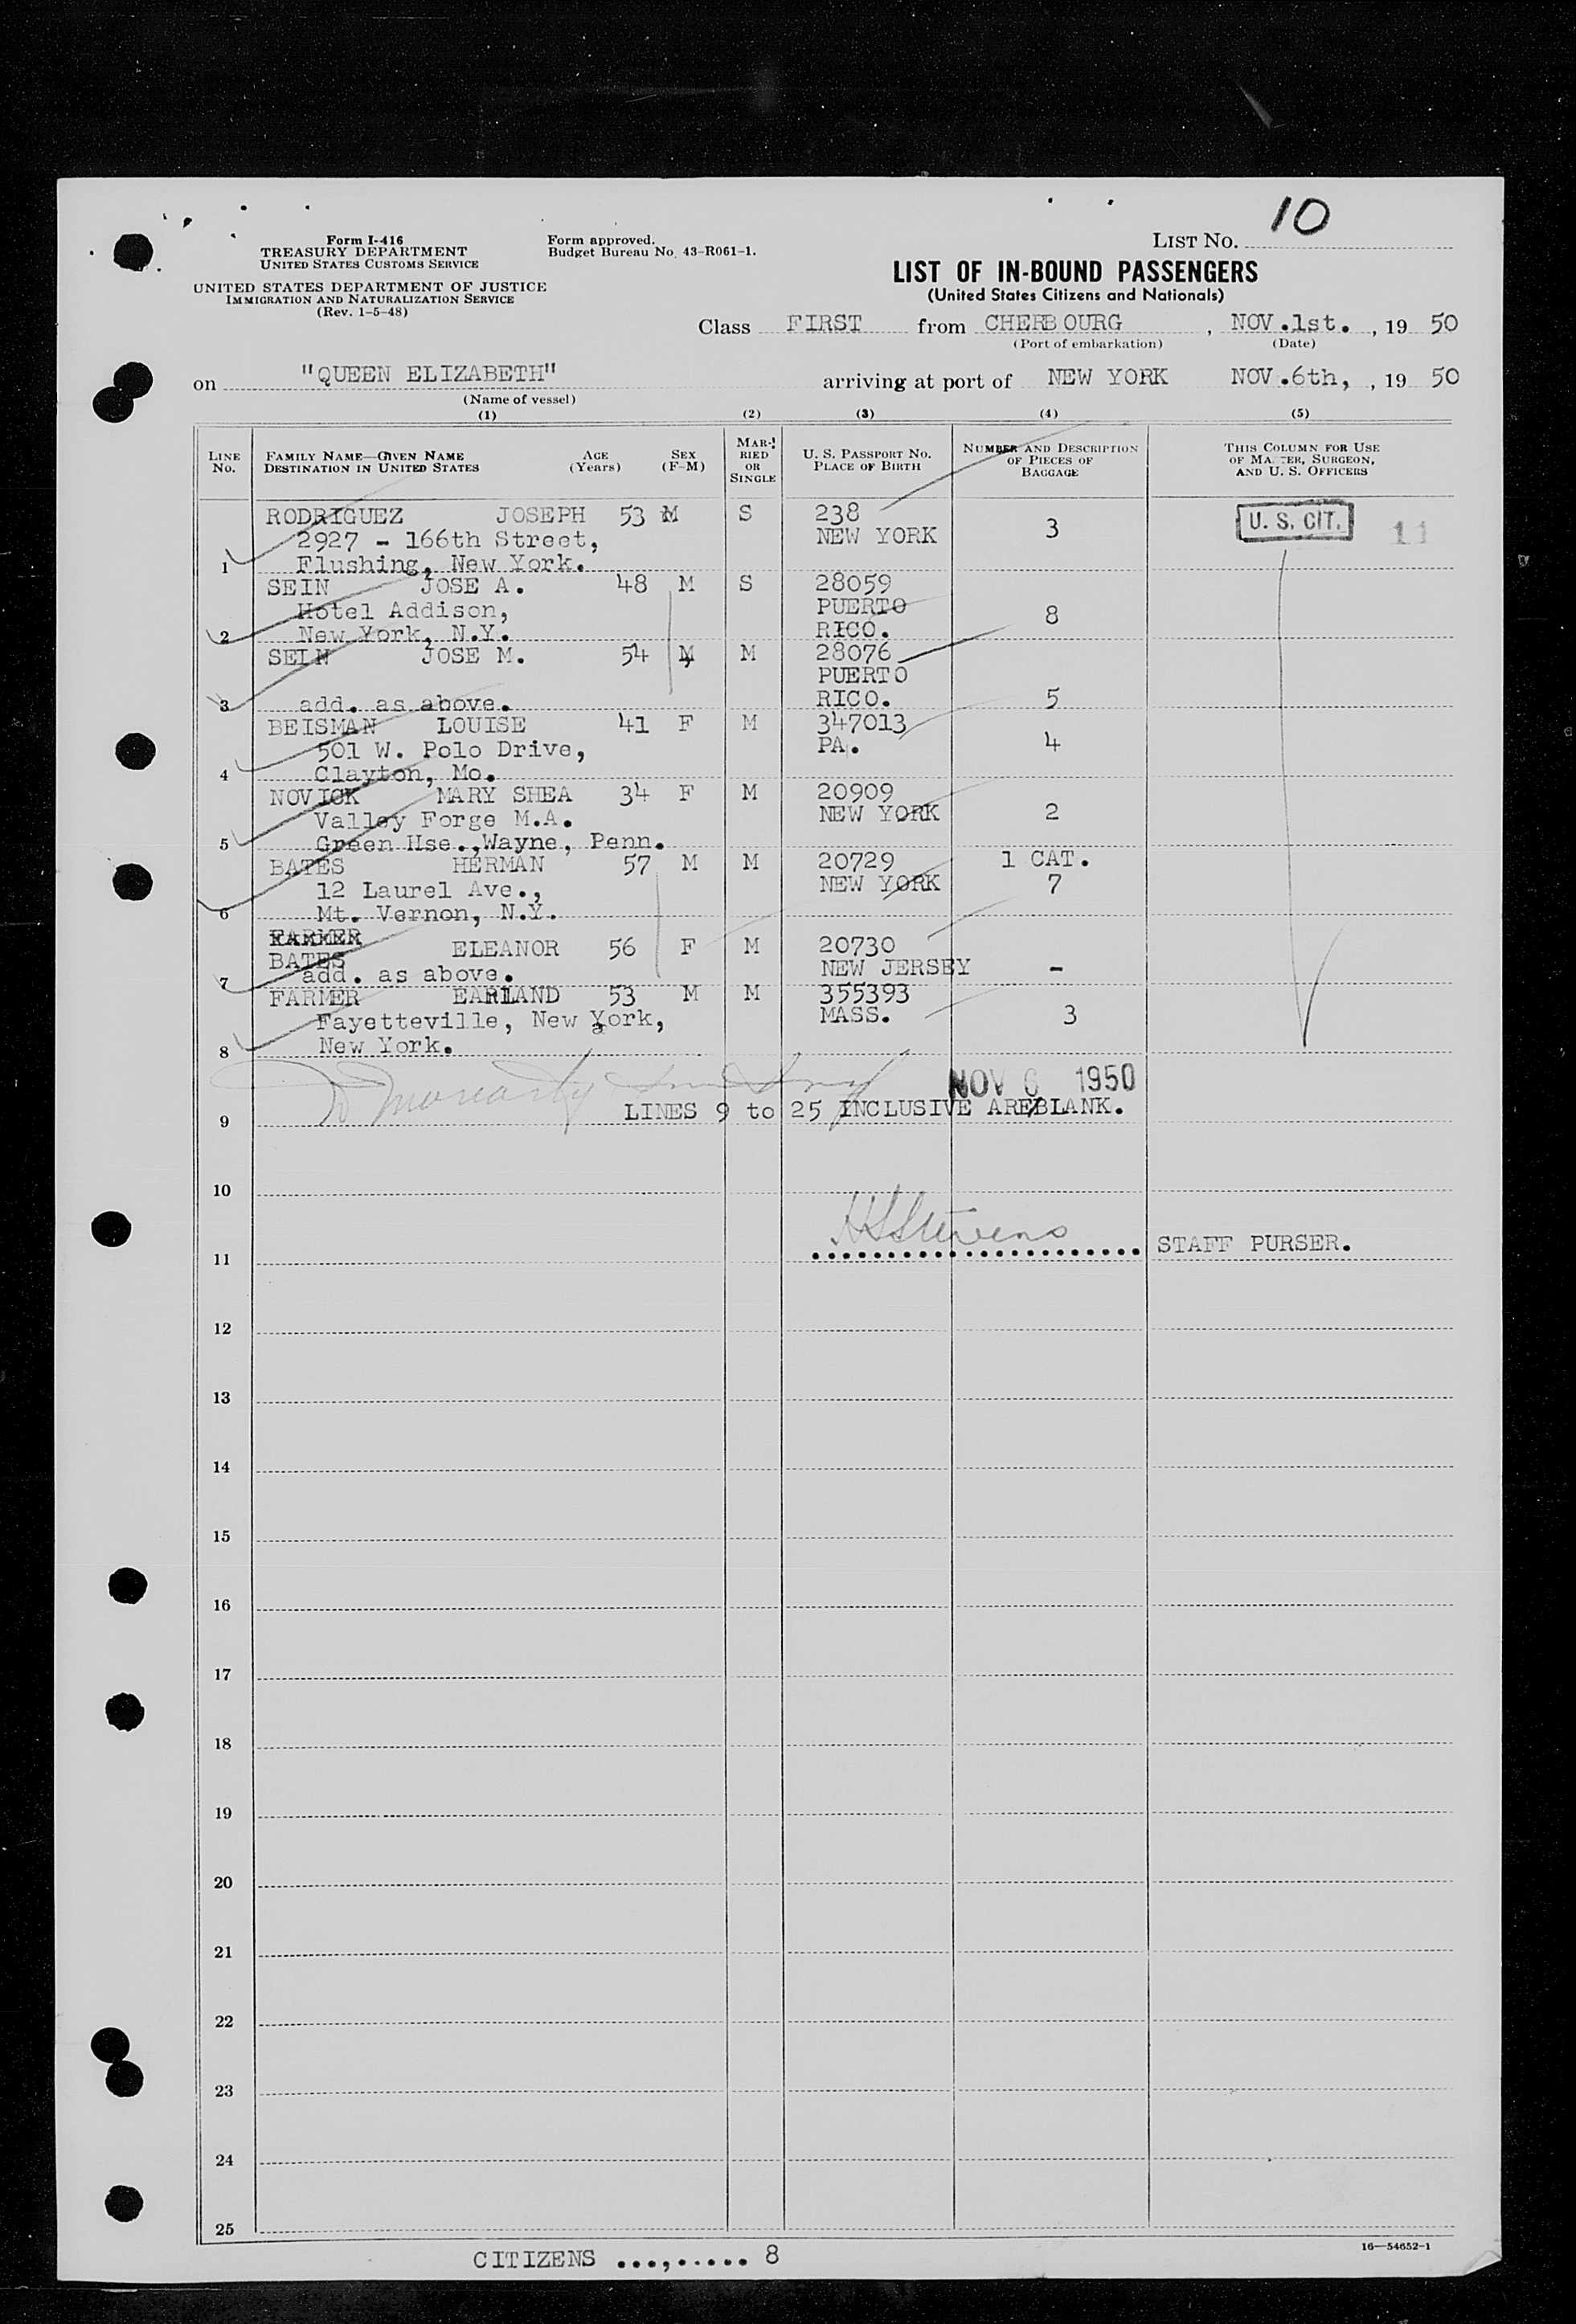 10
Form I-416
TREASURY DEPARTMENT
UNITED STATES CUSTOMS SERVICE
UNITED STATES DEPARTMENT OF JUSTICE
IMMIGRATION AND NATURALIZATION SERVICE
(Rev. 1-5-48)
Form approved.
Budget Bureau No. 43-R061-1.
LIST NO.
LIST OF IN-BOUND PASSENGERS
(United States Citizens and Nationals)
Class FIRST from CHERBOURG, NOV.1st., 19 50
(Port of embarkation) (Date)
on "QUEEN ELIZABETH" arriving at port of NEW YORK NOV.6th, , 19 50
(Name of vessel)
(1) (2) (3) (4) (5)
LINE NO.
FAMILY NAME—GIVEN NAME
DESTINATION IN UNITED STATES
AGE (Years)
SEX (F-M)
MARRIED OR SINGLE
U. S. PASSPORT NO.
PLACE OF BIRTH
NUMBER AND DESCRIPTION OF PIECES OF BAGGAGE
THIS COLUMN FOR USE OF MASTER, SURGEON, AND U. S. OFFICERS
RODRIGUEZ JOSEPH 53 M S 238 U. S. CIT. 11
2927 - 166th Street, NEW YORK 3
1 Flushing, New York.
SEIN JOSE A. 48 M S 28059
Hotel Addison, PUERTO 8
2 New York, N.Y. RICO.
SEIN JOSE M. 54 M M 28076
PUERTO
3 add. as above. RICO. 5
BEISMAN LOUISE 41 F M 347013
501 W. Polo Drive, PA. 4
4 Clayton, Mo.
NOVICK MARY SHEA 34 F M 20909
Valley Forge M.A. NEW YORK 2
5 Green Hse.,Wayne, Penn.
BATES HERMAN 57 M M 20729 1 CAT.
12 Laurel Ave., NEW YORK 7
6 Mt. Vernon, N.Y.
FARMER
BATES ELEANOR 56 F M 20730
7 add. as above. NEW JERSEY -
FARMER EARLAND 53 M M 355393
Fayetteville, New York, MASS. 3
8 New York.
NOV 6 1950
9 LINES 9 to 25 INCLUSIVE ARE BLANK.
10
HSStevens
11 STAFF PURSER.
12
13
14
15
16
17
18
19
20
21
22
23
24
25
CITIZENS ...,..... 8
16—54652-1